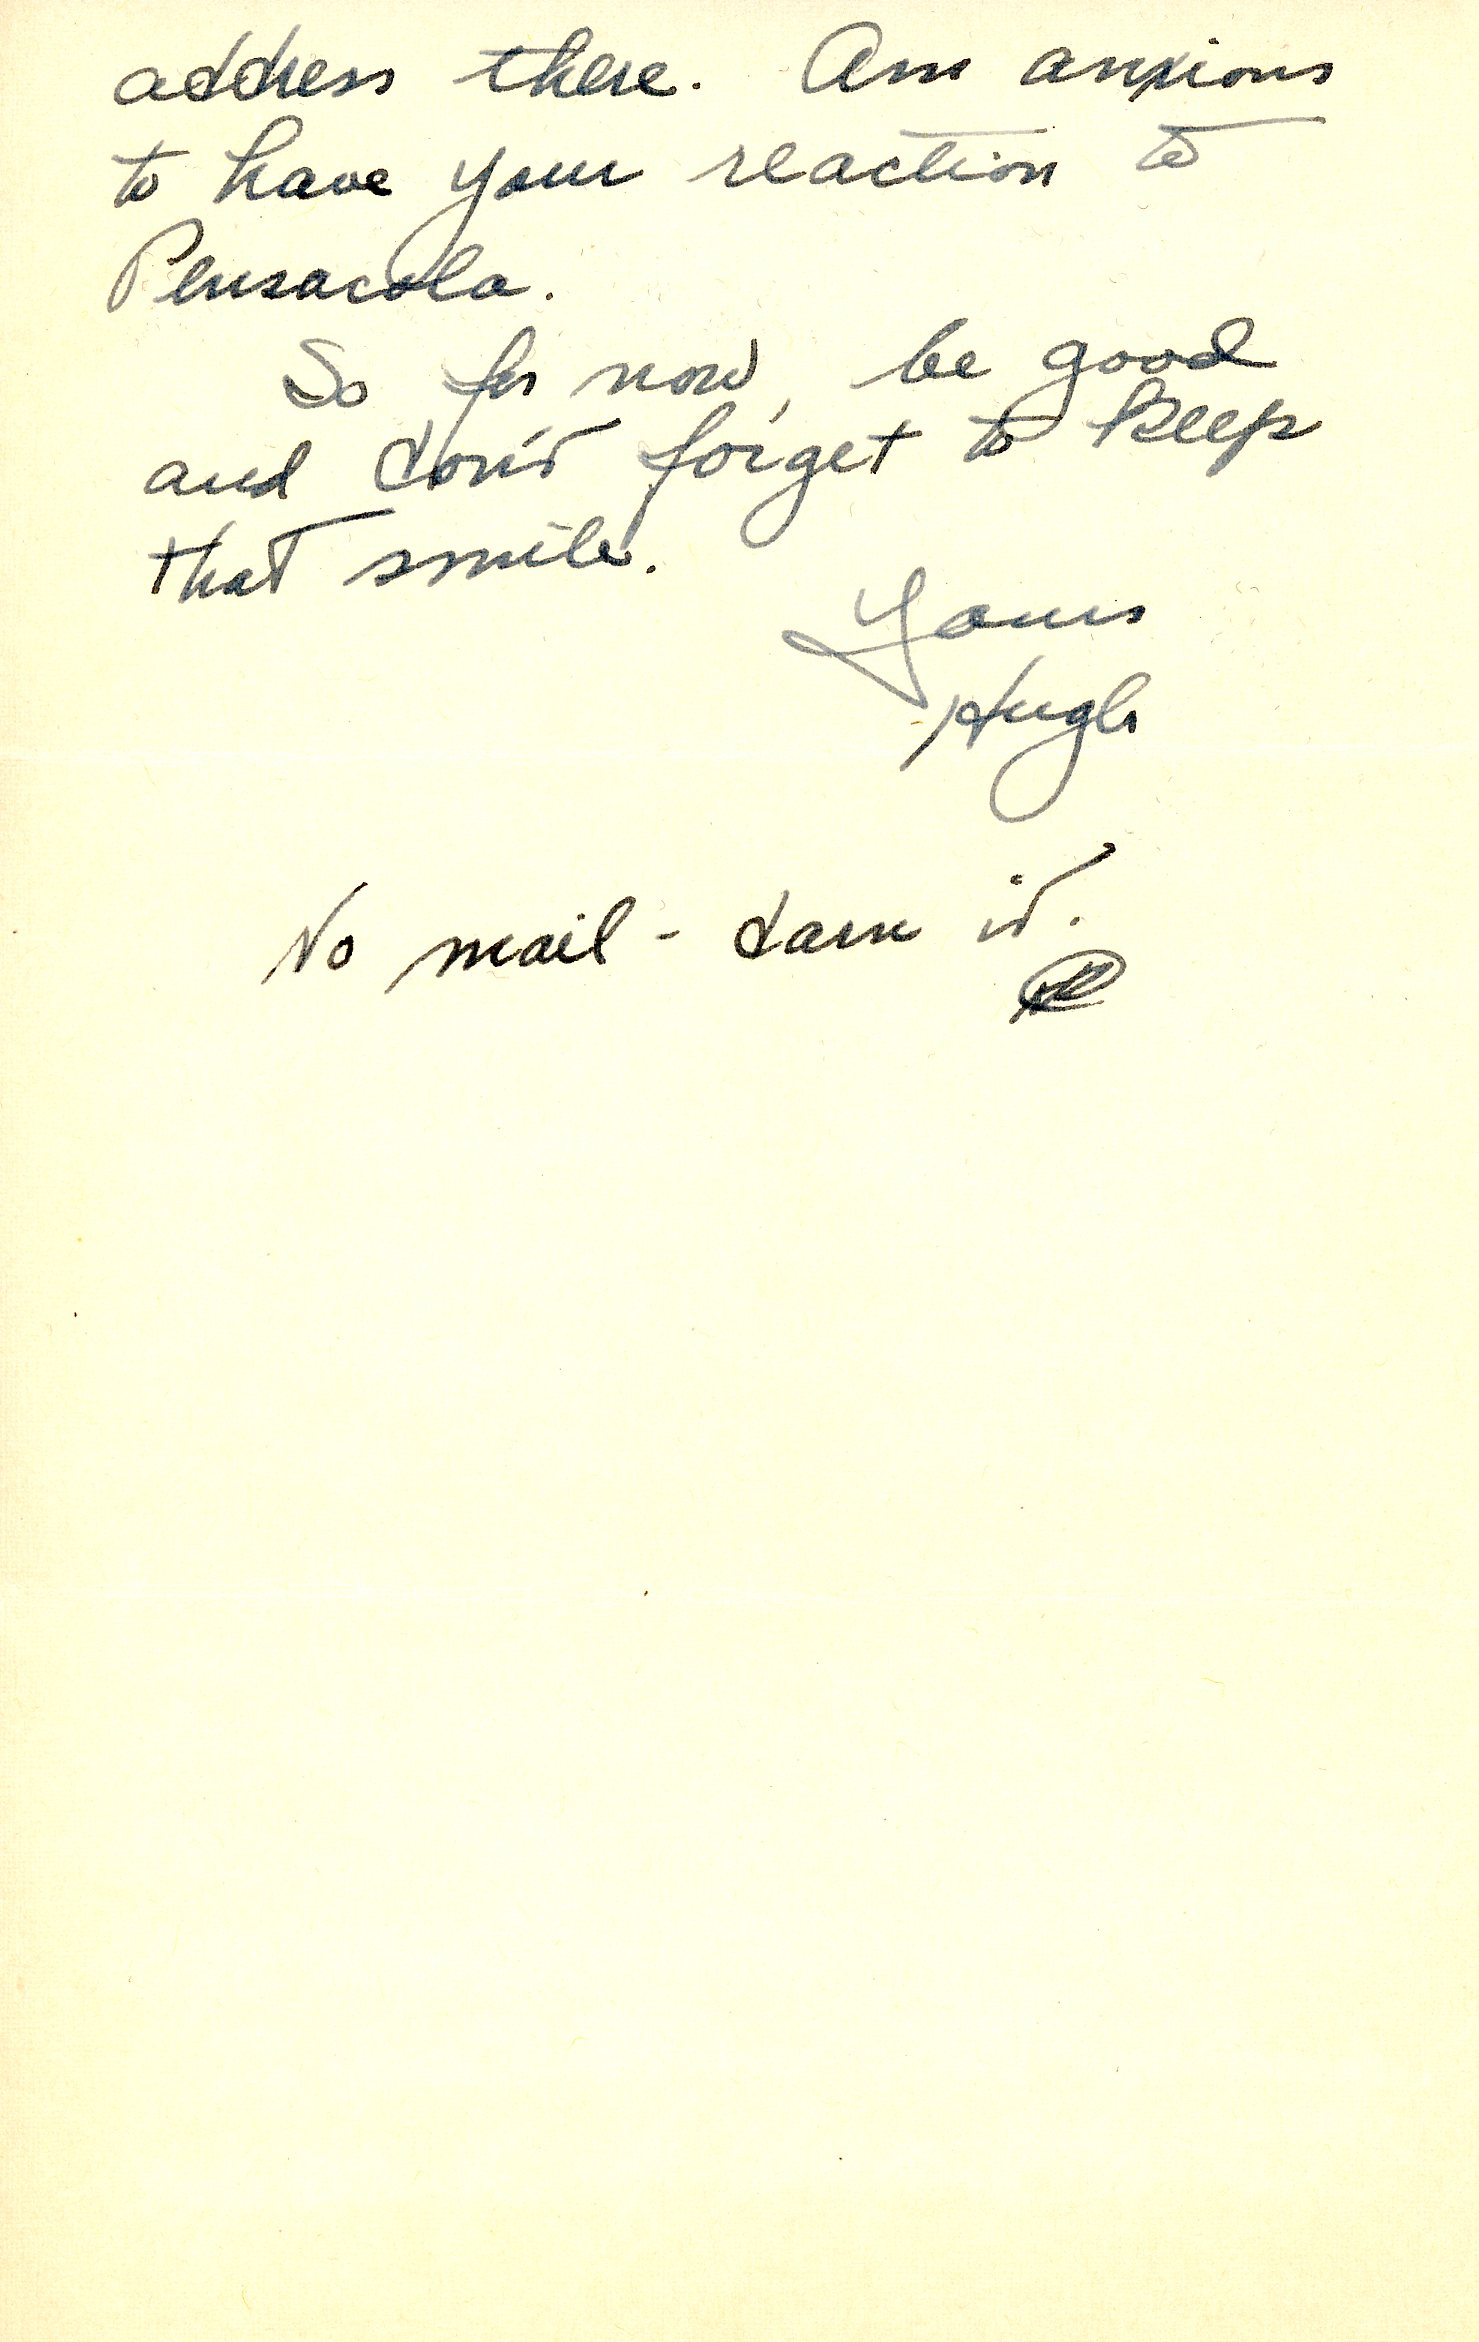 address there. Am anxious
to have your reaction to
Pensacola.
So for now, be good
and don't forget to keep
that smile.
Yours
Hugh
No mail - darn it.